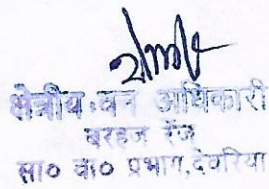 क्षेत्रीय वन अधिकारी
बरहज रेंज
सा० वा० प्रभाग, देवरिया